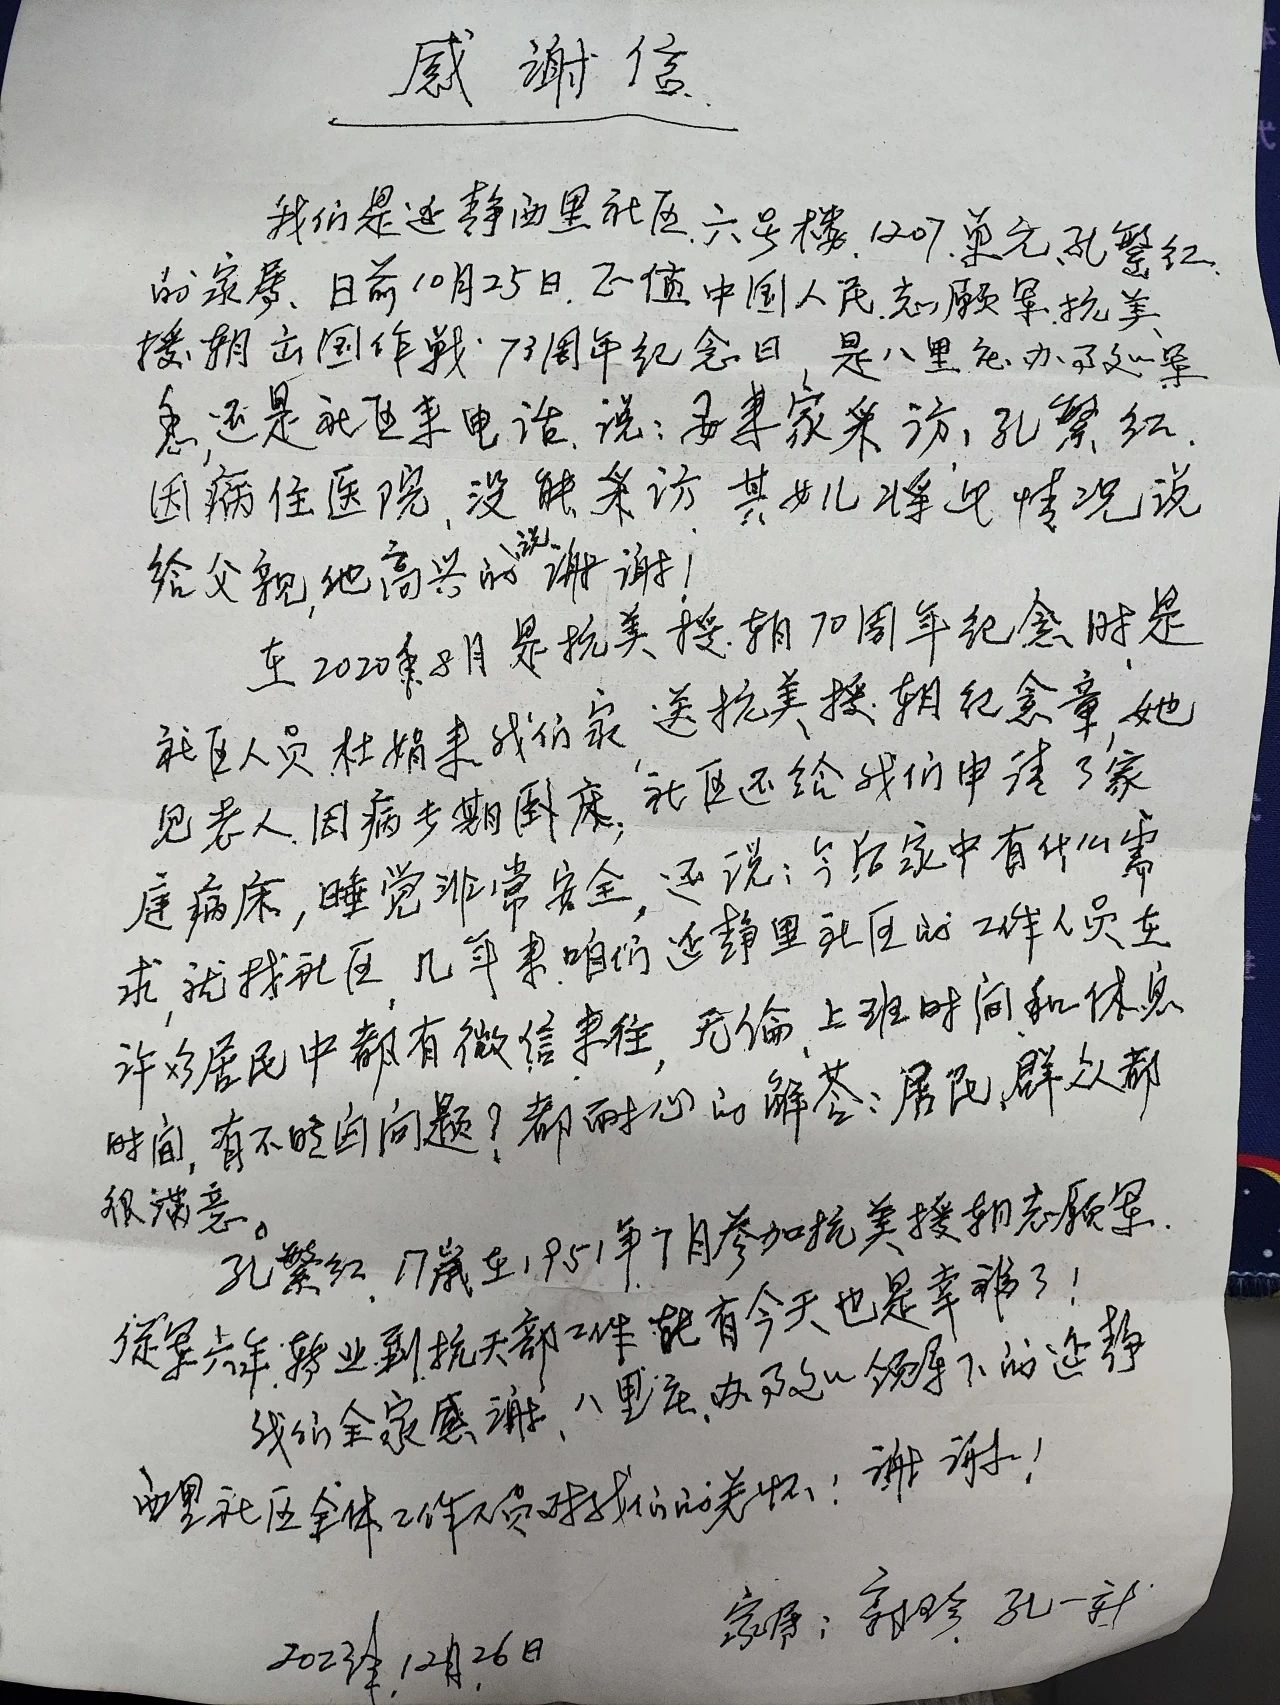 感谢信
我们是延静西里社区.六号楼.1207.单元.孔繁红.
的家属、日前10月25日.正值中国人民.志愿军.抗美
援.朝出国作战.73周年纪念日,是八里庄.办事处
还是社区来电话.说:要来家采访,孔繁红.
因病住医院,没能采访.其女儿将此情况说
给父亲,他高兴的说谢谢!
在2020年8月是抗美援.朝70周年纪念时是
社区人员杜娟来我们家,送抗美援.朝纪念章,她
见老人.因病长期卧床,社区还给我们申请了家
庭病床,睡觉非常安全,还说:今后家中有什么需
求,就找社区,几年来咱们延静里社区的工作人员在
许多居民中都有微信来往,无论,上班时间和休息
时间,有不明白问题?都耐心的解答:居民,群众都
很满意。
孔繁红,17岁在1951年7月参加抗美援朝志愿军.
从军六年.转业到.抗天部工作.能有今天也是幸福了!
我们全家感谢,八里庄.办事处领导下的延静
西里社区全体工作人员对我们的关怀!谢谢!
家属:郭珍.孔一新
2023年.12月.26日